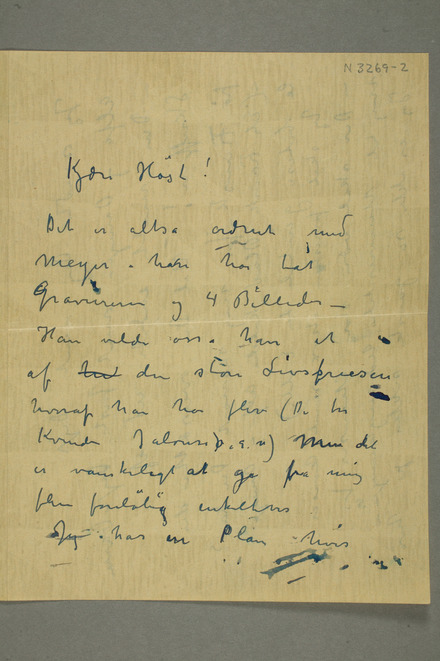 N 3269-2
Kjære Höst!
Det er altså ordnet med
Meyer – han har tat
Gravüren og 4 Billeder –
Han vilde også have et
af den store Livsfriesen
hvoraf han har flere (De tre
Kvinder Jalousi o.s.v) Men det
er vanskeligt at gå fra mig
flere foreløbig enkeltvis
Jeg har en Plan – hvis